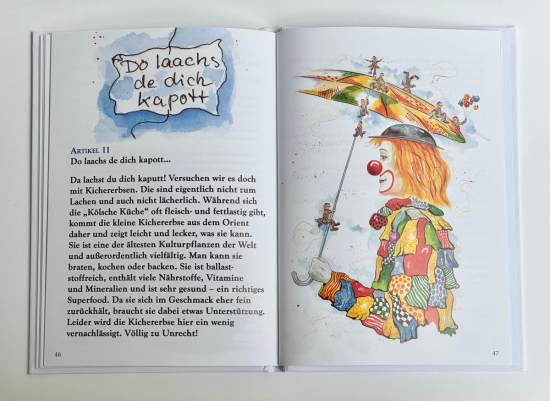 Do laachs
de dich
kapott
Artikel 11
Do laachs de dich kapott...
Da lachst du dich kaputt! Versuchen wir es doch
mit Kichererbsen. Die sind eigentlich nicht zum
Lachen und auch nicht lächerlich. Während sich
die „Kölsche Küche“ oft fleisch- und fettlastig gibt,
kommt die kleine Kichererbse aus dem Orient
daher und zeigt leicht und lecker, was sie kann.
Sie ist eine der ältesten Kulturpflanzen der Welt
und außerordentlich vielfältig. Man kann sie
braten, kochen oder backen. Sie ist ballast-
stoffreich, enthält viele Nährstoffe, Vitamine
und Mineralien und ist sehr gesund – ein richtiges
Superfood. Da sie sich im Geschmack eher fein
zurückhält, braucht sie dabei etwas Unterstützung.
Leider wird die Kichererbse hier ein wenig
vernachlässigt. Völlig zu Unrecht!
46
47